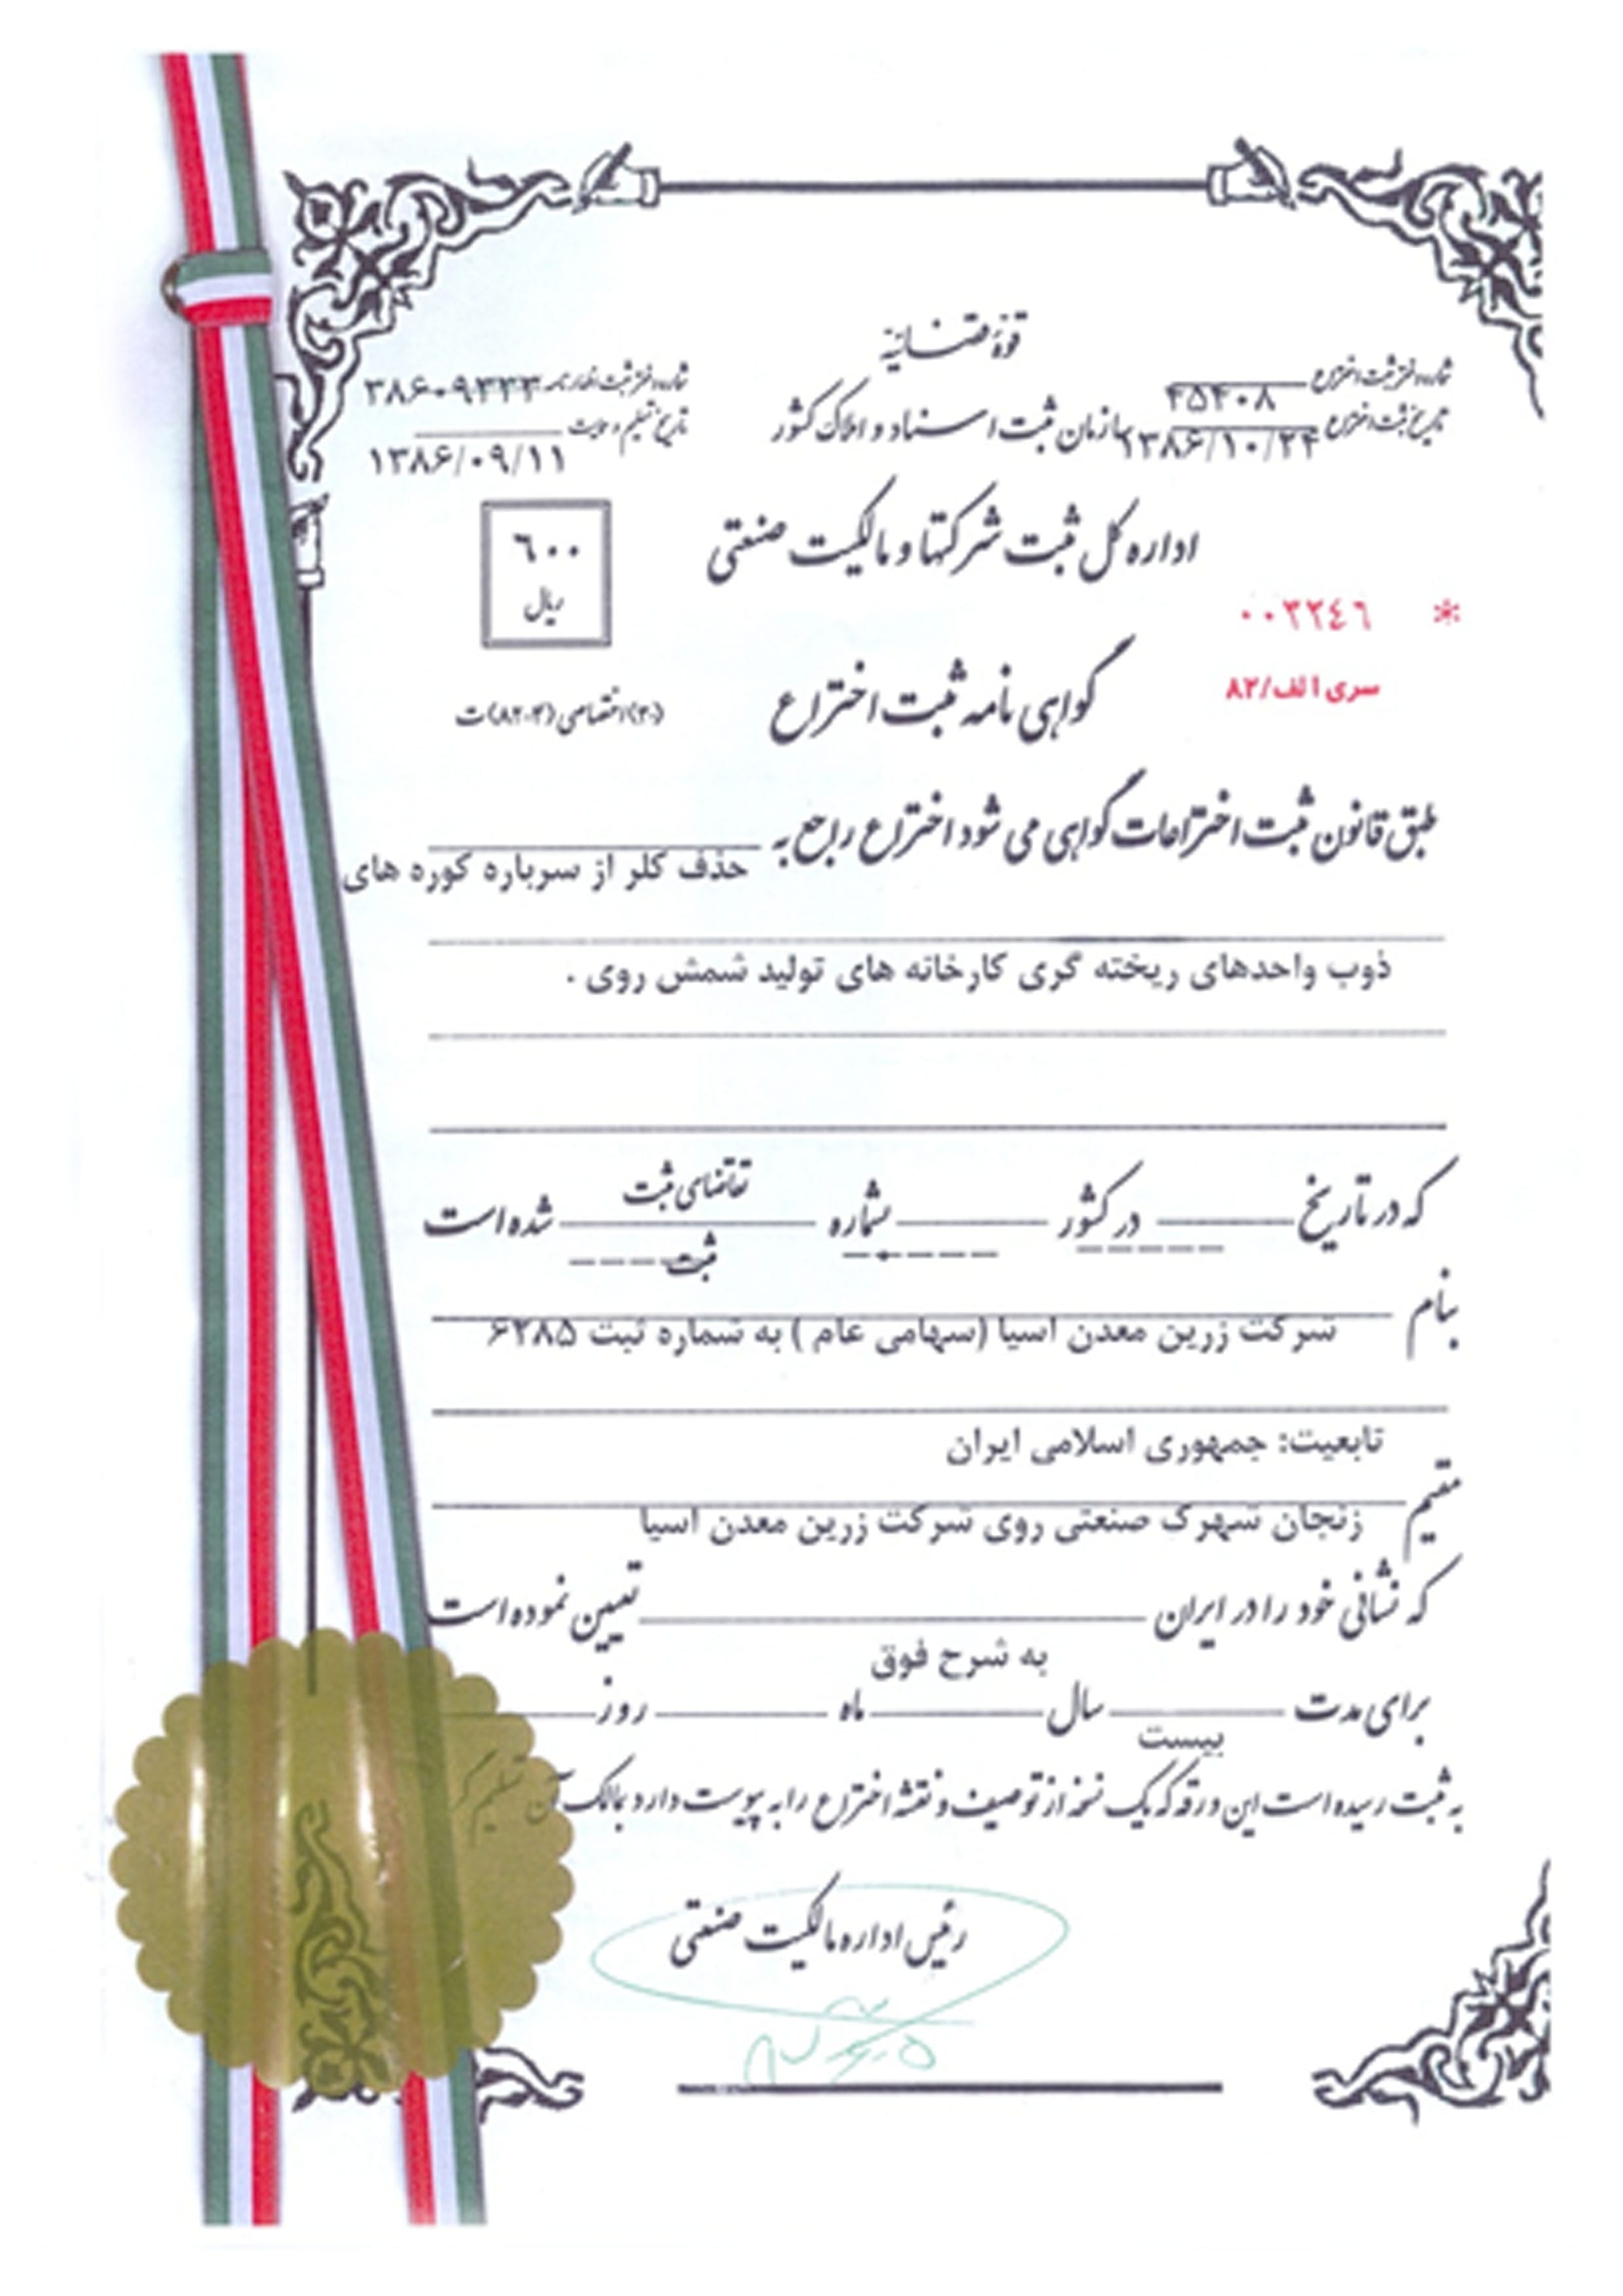 قوهٔ قضائیه
شماره دفتر ثبت اختراع ۴۵۴۰۸
تاریخ ثبت اختراع ۱۳۸۶/۱۰/۲۴
سازمان ثبت اسناد و املاک کشور
شماره دفتر ثبت اظهارنامه
تاریخ تسلیم ۱۳۸۶/۰۹/۱۱
اداره کل ثبت شرکتها و مالکیت صنعتی
۶۰۰
ریال
* ۰۰۲۲٤٦
سری الف/۸۲
گواهی نامه ثبت اختراع
(۳۰) اختصاصی (۸۲۰۴) ت
طبق قانون ثبت اختراعات گواهی می شود اختراع راجع به حذف کلر از سرباره کوره های
ذوب واحدهای ریخته گری کارخانه های تولید شمش روی .
که در تاریخ در کشور شماره تقاضای ثبت شده است
ثبت
بنام شرکت زرین معدن آسیا (سهامی عام ) به شماره ثبت ۶۲۸۵
تابعیت: جمهوری اسلامی ایران
مقیم زنجان شهرک صنعتی روی شرکت زرین معدن آسیا
که نشانی خود را در ایران تعیین نموده است
به شرح فوق
برای مدت بیست سال ماه روز
به ثبت رسیده است این ورقه که یک نسخه از توصیف و نقشه اختراع را به پیوست دارد بمالک آن تسلیم
رئیس اداره مالکیت صنعتی